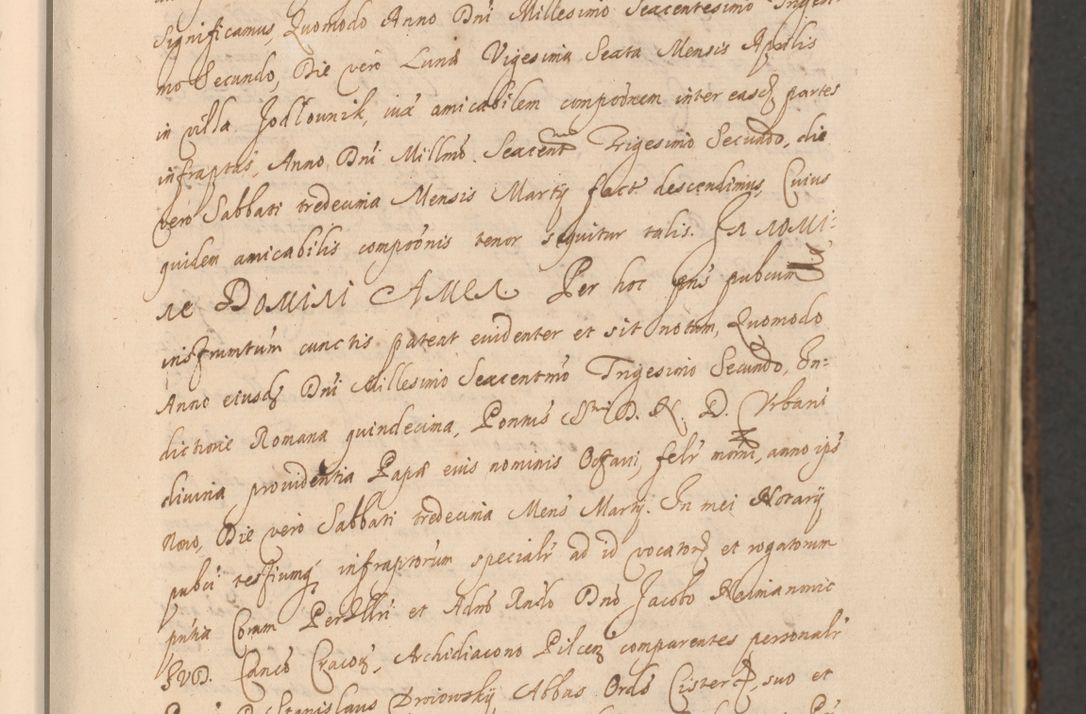 Significamus, Quomodo Anno Dni Millesimo Sexcentesimo Trigesi-
mo Secundo, Die vero Lunæ Vigesima Sexta Mensis Aprilis
in villa Jodłownik, iuxa amicabilem compoonem inter easdꝫ partes
infraptas, Anno Dni Millmo Sexcent̃mo Trigesimo Secundo, die
vero Sabbati tredecima Mensis Martij fact descendimus, Cuius
quidem amicabilis compoonis tenor sequitur talis. IN NOMI-
NE DOMINI AMEN. Per hoc pns pubcum
instrumtum cunctis pateat euidenter et sit notum, Quomodo
Anno eiusdꝫ Dni Millesimo Sexcentmo Trigesimo Secundo, In-
dictione Romana quindecima, Pontus SSmi D. N. D. Vrbani
diuina prouidentia Papæ euis nominis Octaui, felr moni, anno ips
Nono, Die vero Sabbati tredecima Mens Martij. In mei Notarij
pubci testiumqꝫ infraptorum specialr ad id vocatorꝫ et rogatorum
pntia Coram Perillri et Admo Rndo Dno Jacobo Naimanowic
JVD. Canco Cracoꝫ, Archidiacono Pilceꝫ comparentes personalr
Stanislaus Droiowskij Abbas Ords Cistercꝫ, suo et